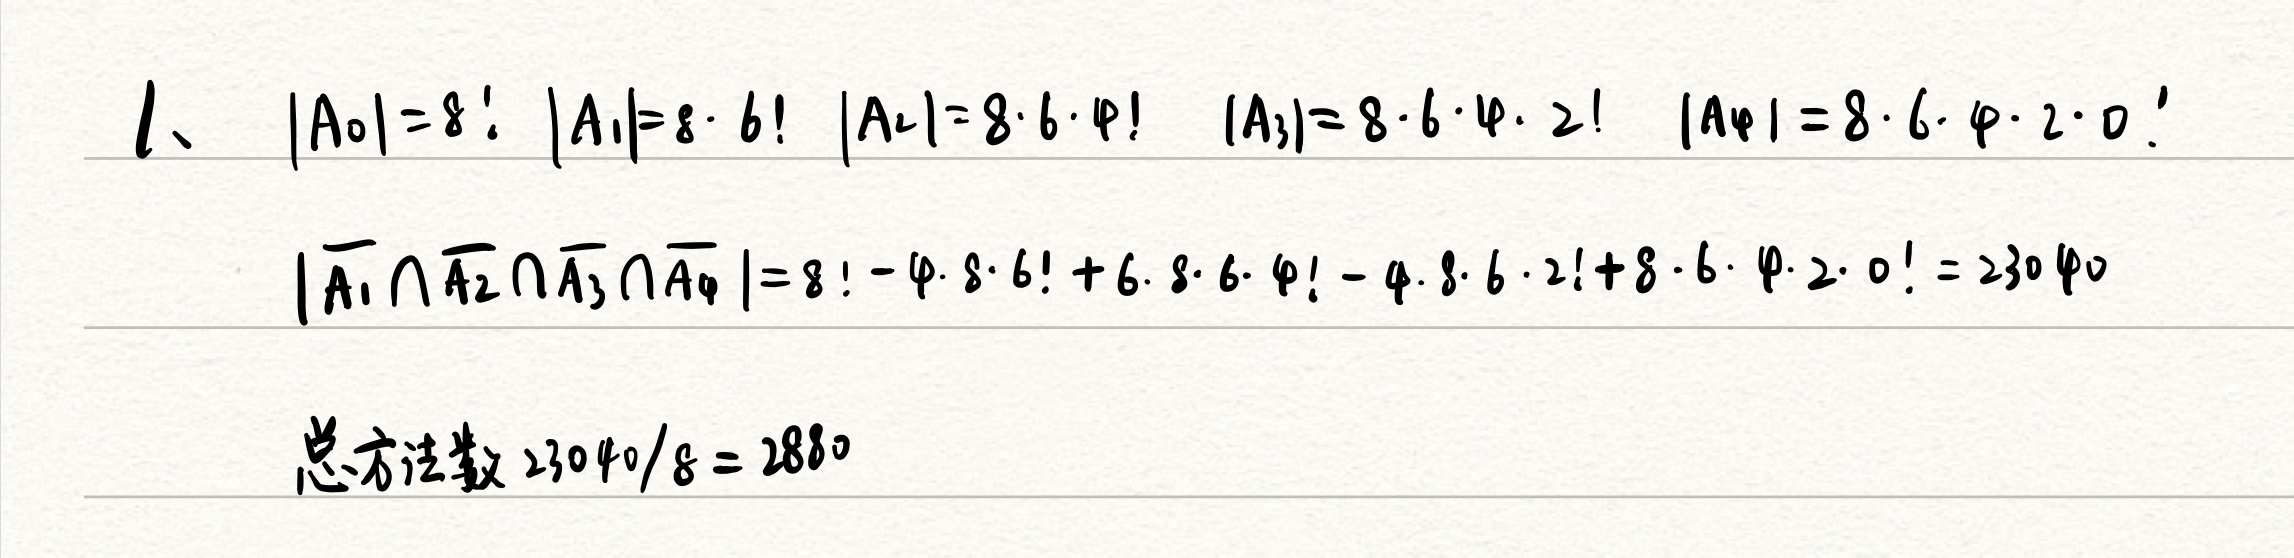 1、 |A₀| = 8! |A₁| = 8·6! |A₂| = 8·6·4! |A₃| = 8·6·4·2! |A₄| = 8·6·4·2·0!
|A̅₁ ∩ A̅₂ ∩ A̅₃ ∩ A̅₄| = 8! - 4·8·6! + 6·8·6·4! - 4·8·6·2! + 8·6·4·2·0! = 23040
总方法数 23040/8 = 2880